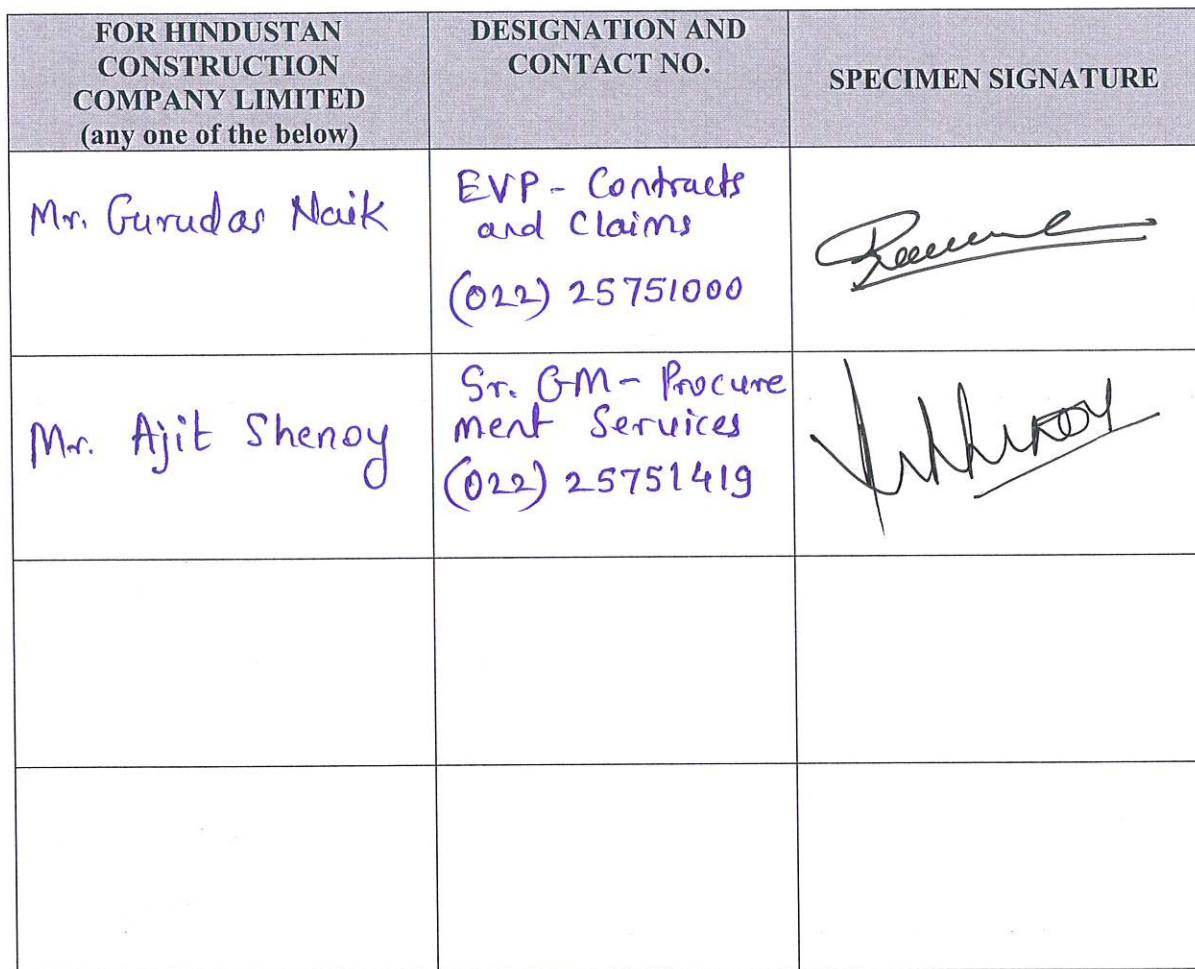 FOR HINDUSTAN
CONSTRUCTION
COMPANY LIMITED
(any one of the below)
DESIGNATION AND
CONTACT NO.
SPECIMEN SIGNATURE
Mr. Gurudas Naik
EVP - Contracts
and Claims
(022) 25751000
Mr. Ajit Shenoy
Sr. GM - Procure
ment Services
(022) 25751419